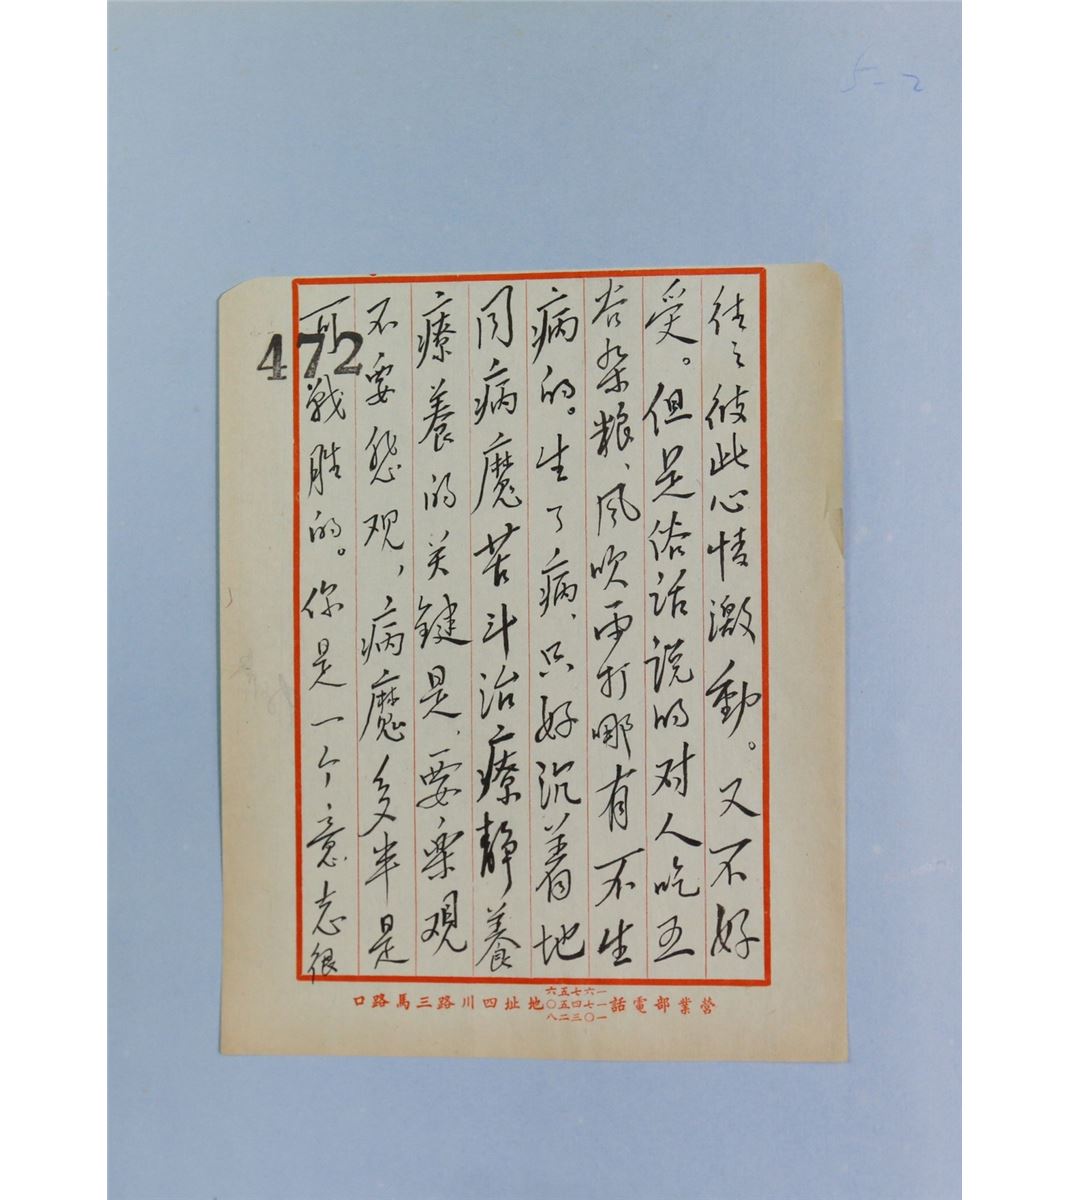 5-2
472
往々彼此心情激動。又不好
受。但是俗话说的对人吃五
谷杂粮、风吹雨打哪有不生
病的。生了病、只好沉着地
同病魔苦斗治療静養
療養的关鍵是、要乐观
不要悲观，病魔多半是
可戰胜的。你是一个意志很
營業部電話 一六七五六 一七四五〇 一〇三二八 地址四川路三馬路口